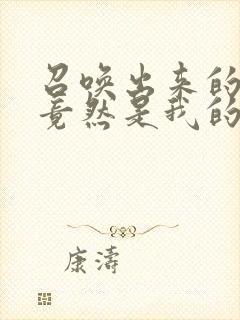 召唤出来的
竟然是我的
康濤